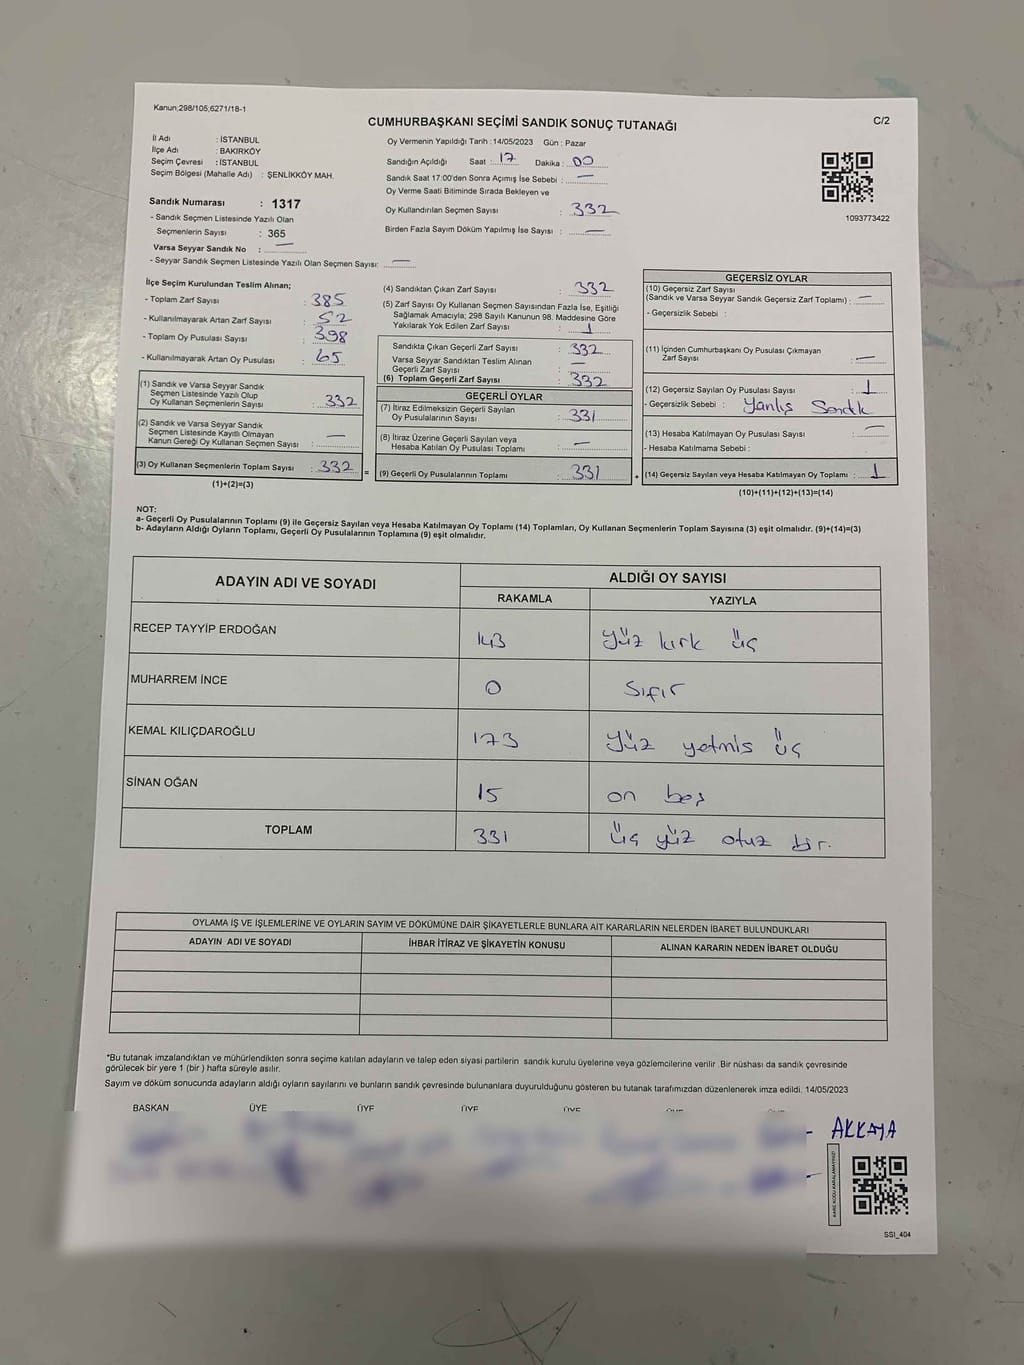 Kanun;298/105;6271/18-1
CUMHURBAŞKANI SEÇİMİ SANDIK SONUÇ TUTANAĞI
C/2
İl Adı : İSTANBUL
İlçe Adı : BAKIRKÖY
Seçim Çevresi : İSTANBUL
Seçim Bölgesi (Mahalle Adı) : ŞENLİKKÖY MAH.
Sandık Numarası : 1317
- Sandık Seçmen Listesinde Yazılı Olan
Seçmenlerin Sayısı : 365
Varsa Seyyar Sandık No : —
- Seyyar Sandık Seçmen Listesinde Yazılı Olan Seçmen Sayısı: —
Oy Vermenin Yapıldığı Tarih :14/05/2023 Gün : Pazar
Sandığın Açıldığı Saat : 17 Dakika : 00
Sandık Saat 17:00'den Sonra Açımış İse Sebebi : —
Oy Verme Saati Bitiminde Sırada Bekleyen ve
Oy Kullandırılan Seçmen Sayısı : 332
Birden Fazla Sayım Döküm Yapılmış İse Sayısı : —
1093773422
İlçe Seçim Kurulundan Teslim Alınan;
- Toplam Zarf Sayısı : 385
- Kullanılmayarak Artan Zarf Sayısı : 52
- Toplam Oy Pusulası Sayısı : 398
- Kullanılmayarak Artan Oy Pusulası : 65
(1) Sandık ve Varsa Seyyar Sandık
Seçmen Listesinde Yazılı Olup
Oy Kullanan Seçmenlerin Sayısı : 332
(2) Sandık ve Varsa Seyyar Sandık
Seçmen Listesinde Kayıtlı Olmayan
Kanun Gereği Oy Kullanan Seçmen Sayısı : —
(3) Oy Kullanan Seçmenlerin Toplam Sayısı : 332 =
(1)+(2)=(3)
(4) Sandıktan Çıkan Zarf Sayısı : 332
(5) Zarf Sayısı Oy Kullanan Seçmen Sayısından Fazla İse, Eşitliği
Sağlamak Amacıyla; 298 Sayılı Kanunun 98. Maddesine Göre
Yakılarak Yok Edilen Zarf Sayısı : 1
Sandıkta Çıkan Geçerli Zarf Sayısı : 332
Varsa Seyyar Sandıktan Teslim Alınan
Geçerli Zarf Sayısı : —
(6) Toplam Geçerli Zarf Sayısı : 332
GEÇERLİ OYLAR
(7) İtiraz Edilmeksizin Geçerli Sayılan
Oy Pusulalarının Sayısı : 331
(8) İtiraz Üzerine Geçerli Sayılan veya
Hesaba Katılan Oy Pusulası Toplamı : —
(9) Geçerli Oy Pusulalarının Toplamı : 331 +
GEÇERSİZ OYLAR
(10) Geçersiz Zarf Sayısı
(Sandık ve Varsa Seyyar Sandık Geçersiz Zarf Toplamı) : —
- Geçersizlik Sebebi :
(11) İçinden Cumhurbaşkanı Oy Pusulası Çıkmayan
Zarf Sayısı : —
(12) Geçersiz Sayılan Oy Pusulası Sayısı : 1
- Geçersizlik Sebebi : Yanlış Sandık
(13) Hesaba Katılmayan Oy Pusulası Sayısı : —
- Hesaba Katılmama Sebebi :
(14) Geçersiz Sayılan veya Hesaba Katılmayan Oy Toplamı : 1
(10)+(11)+(12)+(13)=(14)
NOT:
a- Geçerli Oy Pusulalarının Toplamı (9) ile Geçersiz Sayılan veya Hesaba Katılmayan Oy Toplamı (14) Toplamları, Oy Kullanan Seçmenlerin Toplam Sayısına (3) eşit olmalıdır. (9)+(14)=(3)
b- Adayların Aldığı Oyların Toplamı, Geçerli Oy Pusulalarının Toplamına (9) eşit olmalıdır.
ADAYIN ADI VE SOYADI
ALDIĞI OY SAYISI
RAKAMLA YAZIYLA
RECEP TAYYİP ERDOĞAN 143 yüz kırk üç
MUHARREM İNCE 0 Sıfır
KEMAL KILIÇDAROĞLU 173 yüz yetmis üç
SİNAN OĞAN 15 on beş
TOPLAM 331 üç yüz otuz bir.
OYLAMA İŞ VE İŞLEMLERİNE VE OYLARIN SAYIM VE DÖKÜMÜNE DAİR ŞİKAYETLERLE BUNLARA AİT KARARLARIN NELERDEN İBARET BULUNDUKLARI
ADAYIN ADI VE SOYADI İHBAR İTİRAZ VE ŞİKAYETİN KONUSU ALINAN KARARIN NEDEN İBARET OLDUĞU
*Bu tutanak imzalandıktan ve mühürlendikten sonra seçime katılan adayların ve talep eden siyasi partilerin sandık kurulu üyelerine veya gözlemcilerine verilir .Bir nüshası da sandık çevresinde
görülecek bir yere 1 (bir ) hafta süreyle asılır.
Sayım ve döküm sonucunda adayların aldığı oyların sayılarını ve bunların sandık çevresinde bulunanlara duyurulduğunu gösteren bu tutanak tarafımızdan düzenlenerek imza edildi. 14/05/2023
BAŞKAN ÜYE ÜYE ÜYE ÜYE
AKKAYA
KARE KODU KARALAMAYINIZ!
SSI_404